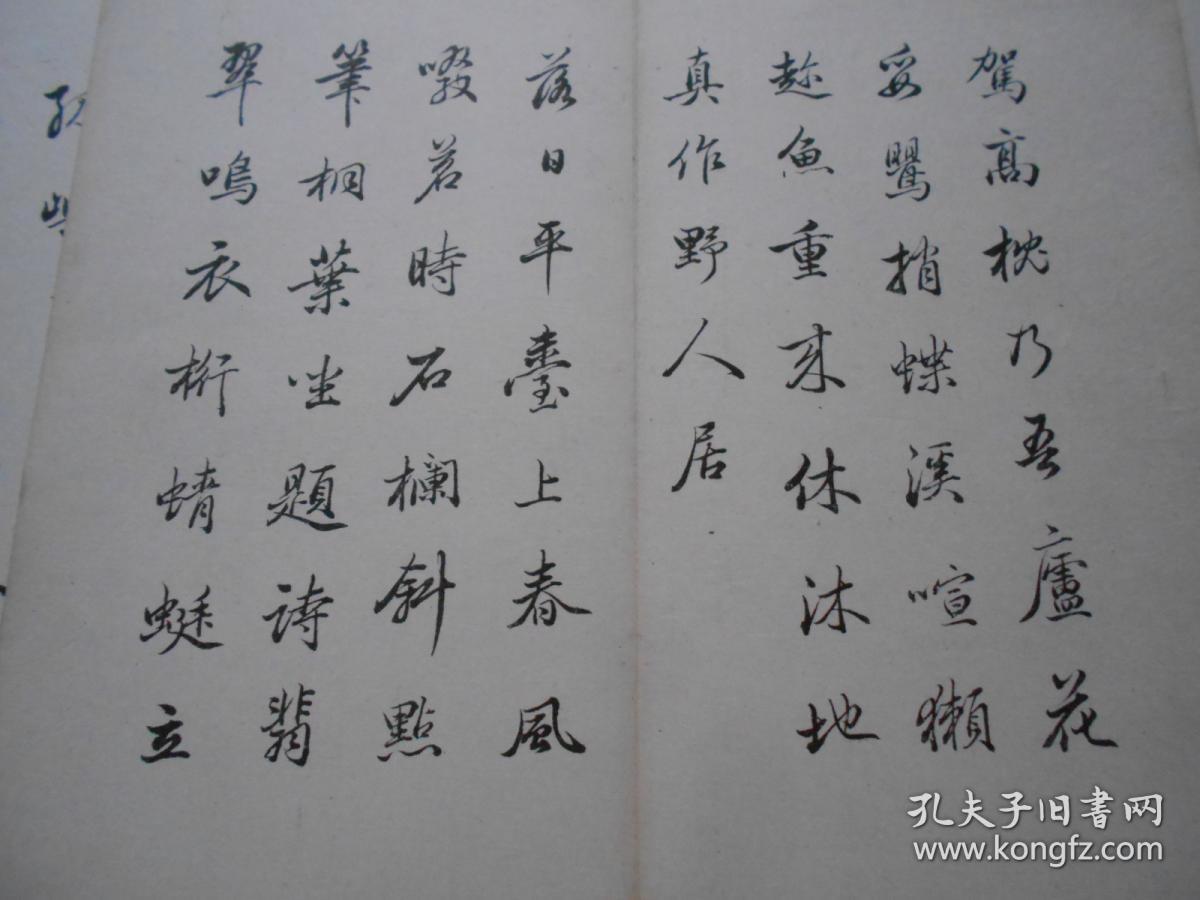 駕高枕乃吾廬花
妥鸎捎蝶溪喧獺
趂魚重来休沐地
真作野人居
落日平臺上春風
啜茗時石欄斜點
筆桐葉坐題詩翡
翠鳴衣桁蜻蜓立
孔夫子旧书网
www.kongfz.com